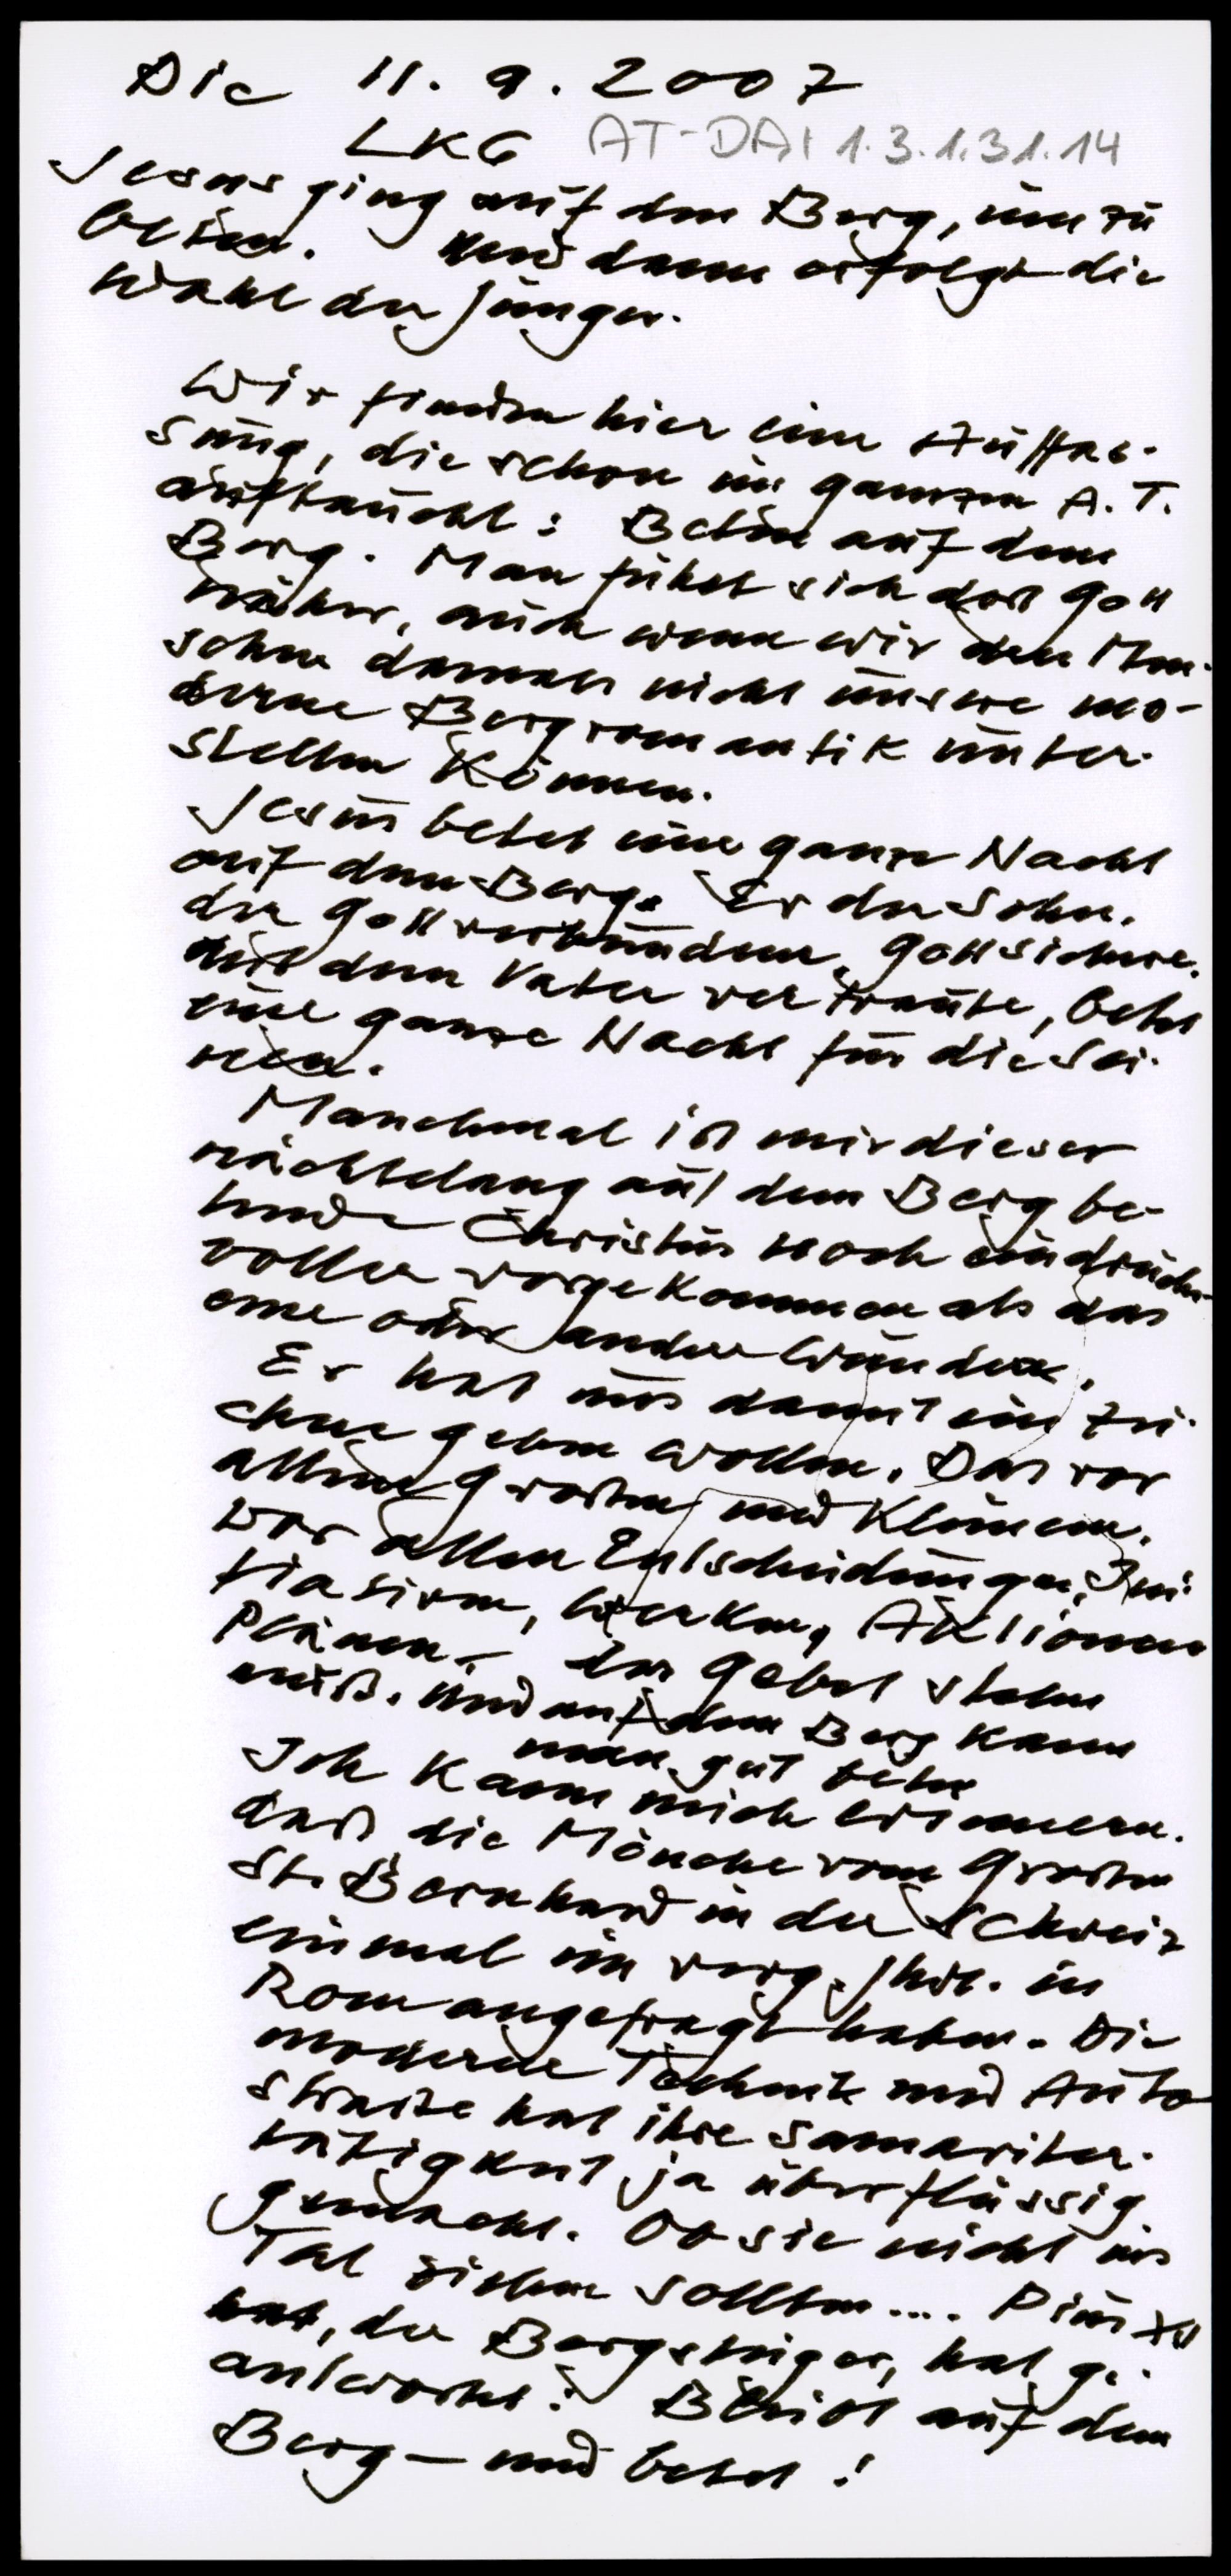 Die 11. 9. 2007
LKG AT-DAI 1.3.1.31.14
Jesus ging auf den Berg, um zu
beten. Und dann erfolgt die
Wahl der Jünger.
Wir finden hier eine Auffas-
sung, die schon im ganzen A. T.
auftaucht: Beten auf dem
Berg. Man fühlt sich dort Gott
näher, auch wenn wir den Men-
schen damals nicht unsere mo-
derne Bergromantik unter-
stellen können.
Jesus betet eine ganze Nacht
auf dem Berg. Er der Sohn,
der gottverbundene, gottsichere,
mit dem Vater vertraute, betet
eine ganze Nacht für die Sei-
nen.
Manchmal ist mir dieser
nächtelang auf dem Berg be-
tende Christus noch eindrucks-
voller vorgekommen als das
eine oder andere Wunder.
Er hat uns damit ein Zei-
chen geben wollen. Das vor
allem Großen und Kleinen,
vor allen Entscheidungen, Ini-
tiativen, Werken, Aktionen
Plänen - das Gebet stehen
muß. Und auf dem Berg kann
man gut beten
Ich kann mich erinnern,
daß die Mönche vom Großen
St. Bernhard in der Schweiz
einmal im vorg. Jhdt. in
Rom angefragt haben. Die
moderne Technik und Auto
straße hat ihre Samariter-
tätigkeit ja überflüssig
gemacht. Ob sie nicht ins
Tal ziehen sollten.... Pius XI
hat, der Bergsteiger, hat ge-
antwortet: Bleibt auf dem
Berg - und betet!